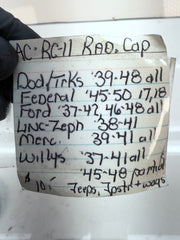 AC-RC-11 RAD. Cap
Dod/Trks '39-48 all
Federal '45-50 17,18
Ford '37-42, 46-48 all
Linc-Zeph '38-41
Merc. '39-41 all
Willys '37-41 all
'45-48
$10 Jeeps, Jpstr + wags